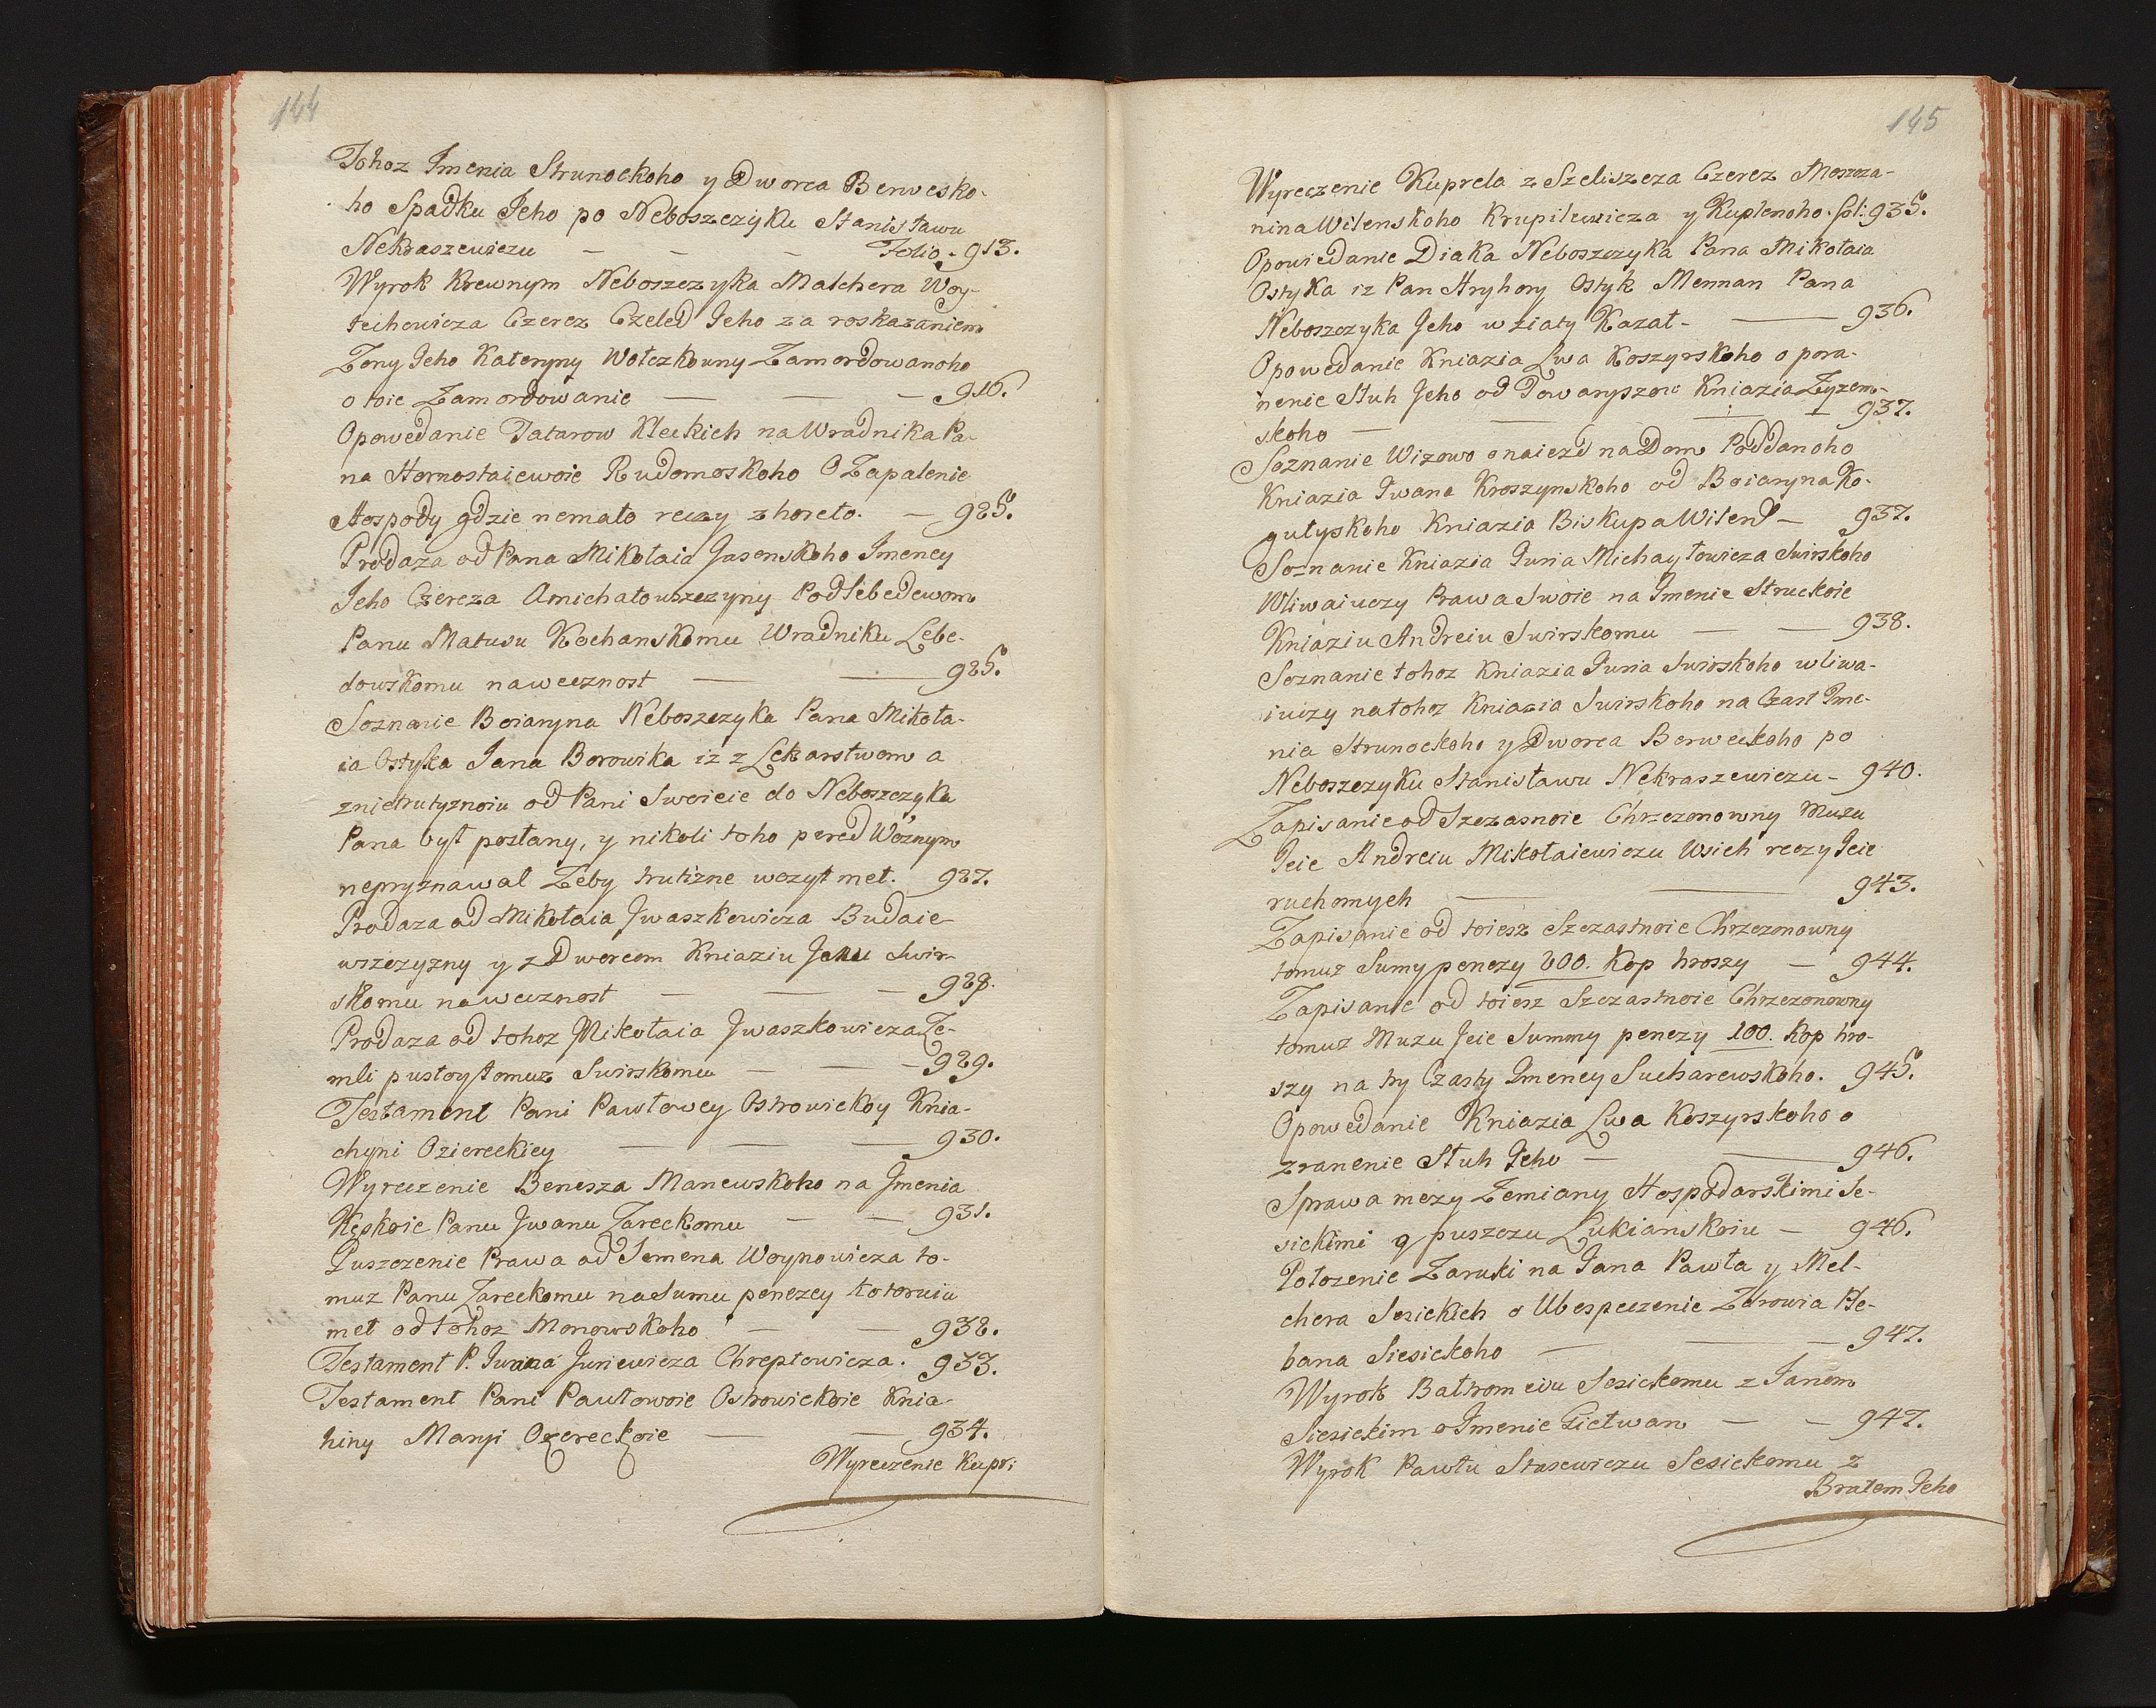 144
Tohoz Imenia Strunockoho y Dworca Berwesko-
ho Spadku Jeho po Neboszczyku Stanisławu
Nekraszewiczu — — — Folio. 913.
Wyrok Krewnym Neboszczyka Malchera Woy-
techowicza Czerez Czeled Jeho za roskazaniem
Zony Jeho Kateryny Wołczkowny Zamordowanoho
o toie Zamordowanie — — — 916.
Opowedanie Tatarow Kleckich na Wradnika Pa-
na Hornostaiewoie Rudomoskoho O Zapalenie
Hospody gdzie nemało reczy zhoreło. — 925.
Prodaza od Pana Mikołaia Jasenskoho Imeney
Jeho Czereza Amichałowszczyny Podlebedewom
Panu Matusu Kochanskomu Wradniku Lebe-
dowskomu nawecznost — — 925.
Soznanie Boiaryna Neboszczyka Pana Mikoła-
ia Ostyka Jana Borowika iz z Lekarstwom a
znietrutyznoiu od Pani Swoieie do Neboszczyka
Pana był posłany, y nikoli toho pered Woznym
nepryznawal Zeby trutizne wczył met. 927.
Prodaza od Mikołaia Jwaszkowicza Budaie-
wszczyzny y z Dworcom Kniaziu Janu Swir-
skomu nawecznost — — — 928.
Prodaza od tohoz Mikołaia Jwaszkowicza Ze-
mli pustoy tomuz Swirskomu — — — 929.
Testament Pani Pawłowey Ostrowickoy Knia-
chyni Oziereckiey — — — 930.
Wyreczenie Benesza Manewskoho na Jmenia
Kęskoie Panu Jwanu Zareckomu — — 931.
Puszczenie Prawa od Semena Woynowicza to-
muz Panu Zareckomu na Sumu penezey kotoruiu
met od tohoz Monowskoho — — 932.
Testament P. Iwana Juriewicza Chreptowicza. 933.
Testament Pani Pawłowoie Ostrowickoie Knia-
hiny Maryi Ozereckoie — — 934.
Wyreczenie Kupr:
145
Wyreczenie Kuprela z Szeliszcza Czerez Meszcza-
nina Wilenskoho Krupilewicza y Kuplenoho. fol: 935.
Opowiedanie Diaka Neboszczyka Pana Mikołaia
Ostyka iz Pan Hryhory Ostyk Mennan Pana
Neboszczyka Jeho wziaty Kazał - — 936.
Opowedanie Kniazia Lwa Koszyrskoho o pora-
nenie Sluh Jeho od Towaryszow Kniazia Zyzem-
skoho — — — 937.
Soznanie Wizowo o naiezd na Dom Poddanoho
Kniazia Jwana Kroszynskoho od Boiaryna Ko-
gutyskoho Kniazia Biskupa Wilen: — 937.
Soznanie Kniazia Juria Michayłowicza Swirskoho
Wliwaiuczy Prawa Swoie na Imenie Struckoie
Kniaziu Andreiu Swirskomu — — 938.
Soznanie tohoz Kniazia Juria Swirskoho wliwa-
iuczy na tohoz Kniazia Swirskoho na Czast Ime-
nia Strunockoho y Dworca Berweckoho po
Neboszczyku Stanisławu Nekraszewiczu - 940.
Zapisanie od Szczasnoie Chrzczonowny Muzu
Jeie Andreiu Mikołaiewiczu Wsich reczy Jeie
ruchomych — — 943.
Zapisanie od toiesz Szczastnoie Chrzczonowny
tomuz Sumy penezy 200. Kop hroszy — 944.
Zapisanie od toiesz Szczastnoie Chrzczonowny
tomuz Muzu Jeie Summy penezy 100. Kop hro-
szy na try Czasty Imeney Sucharewskoho. 945.
Opowedanie Kniazia Lwa Koszyrskoho o
zranenie Sluh Jeho — — 946.
Sprawa mezy Zemiany Hospodarskimi Se-
sickimi o puszczu Lukianskoiu — 946.
Polozenie Zaruki na Jana Pawła y Mel-
chera Sesickich o Ubespeczenie Zdrowia Ple-
bana Siesickoho — — — 947.
Wyrok Bałtromeiu Sesickomu z Janem
Siesickim o Imenie Gietwan — — 947.
Wyrok Pawłu Stasewiczu Sesickomu z
Bratem Jeho